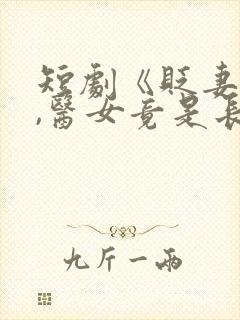 短劇《貶妻
,醫女竟是長
九斤一兩